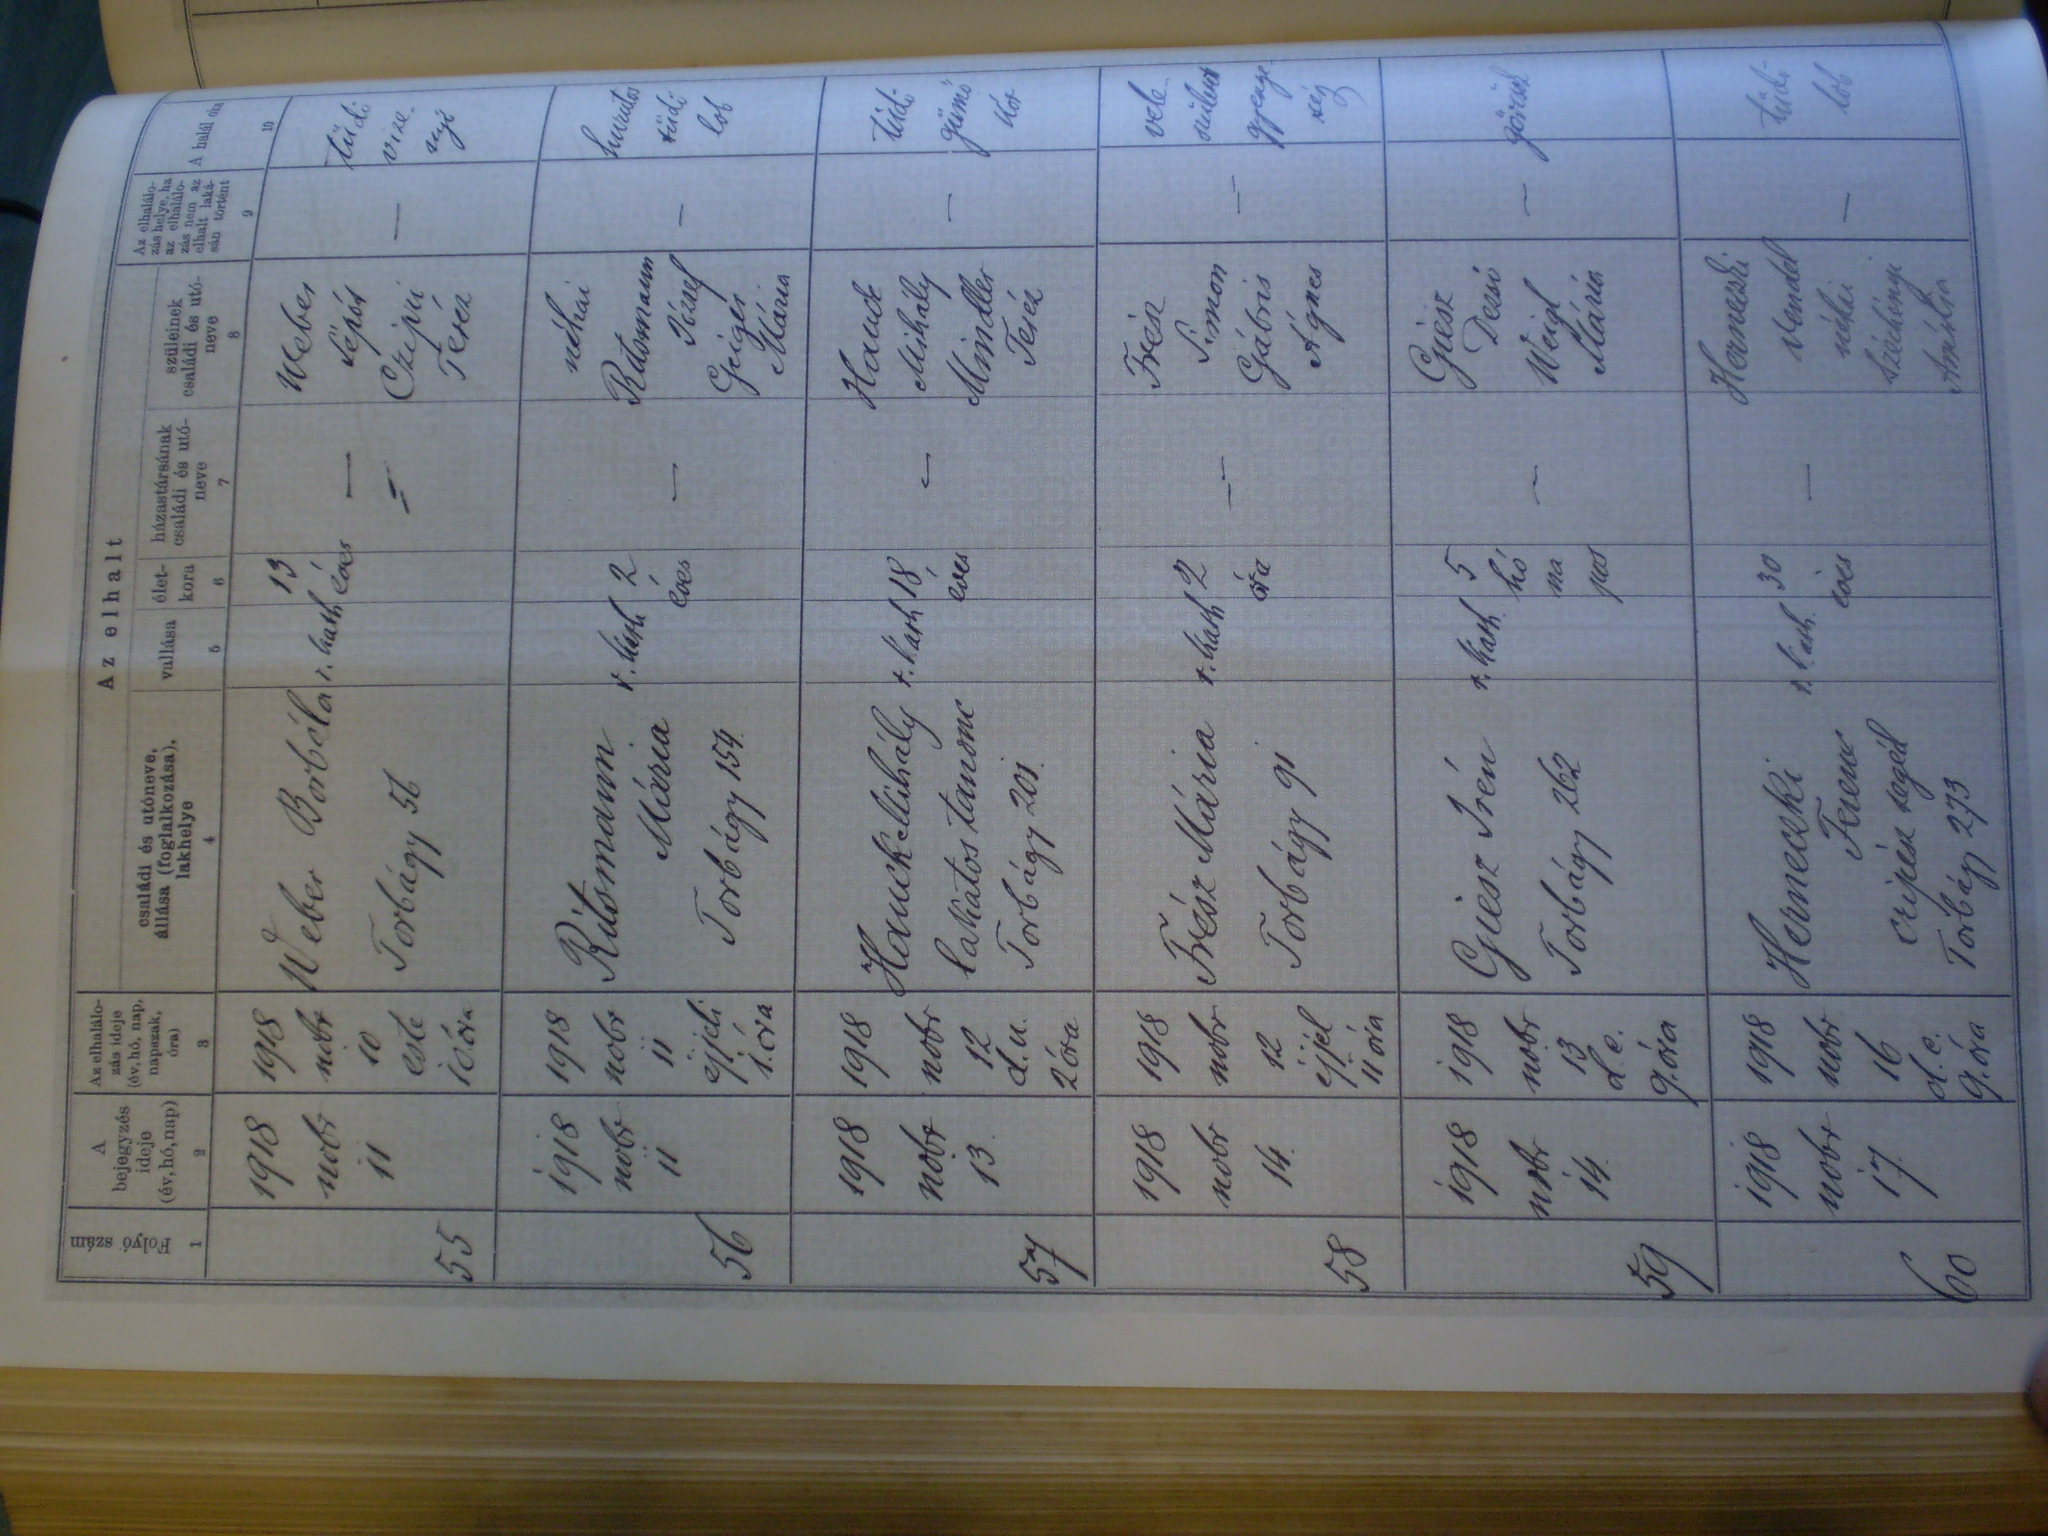 Folyó szám
A bejegyzés ideje (év, hó, nap)
Az elhalálo-
zás ideje
(év, hó, nap,
napszak,
óra)
Az elhalt
családi és utóneve,
állása (foglalkozása),
lakhelye
vallása
élet-
kora
házastársának
családi és utó-
neve
szüleinek
családi és utó-
neve
Az elhalálo-
zás helye, ha
az elhalálo-
zás nem az
elhalt laká-
sán történt
A halál oka
1
2
3
4
5
6
7
8
9
10
55
1918
nobr
11
1918
nobr
10
este
10. óra
Weber Borbéla
Torbágy 56
r. kath
13
éves
—
—
Weber
Czipri
Teréz
—
tüdő
vize
nyő
56
1918
nobr
11
1918
nobr
11
éjjeli
1. óra
Ritsmann
Mária
Torbágy 154.
r. kath
2
éves
—
néhai
Ritsmann
József
Geiger
Mária
—
hurutos
tüdő
lob
57
1918
nobr
13.
1918
nobr
12
d. u.
2 óra
Hauck Mihály
lakatos tanonc
Torbágy 201.
r. kath
18
éves
—
Hauck
Mihály
Mindler
Teréz
—
tüdő
gümő
kór
58
1918
nobr
14.
1918
nobr
12
éjjel
11 óra
Frész Mária
Torbágy 91
r. kath
2
óra
—
Simon
Gábris
Ágnes
—
vele
született
gyenge
ség
59
1918
nobr
14.
1918
nobr
13
d. e.
9. óra
Giesz Irén
Torbágy 262
r. kath.
5
hó
na
pos
—
Giesz
Dezső
Weigl
Mária
—
görcsök
60
1918
nobr
17.
1918
nobr
16
d. e.
9. óra
Herneczki
Ferenc
czipész segéd
Torbágy 273
r. kath.
30
éves
—
Vendel
néhai
Széchényi
Amália
—
tüdő
lob